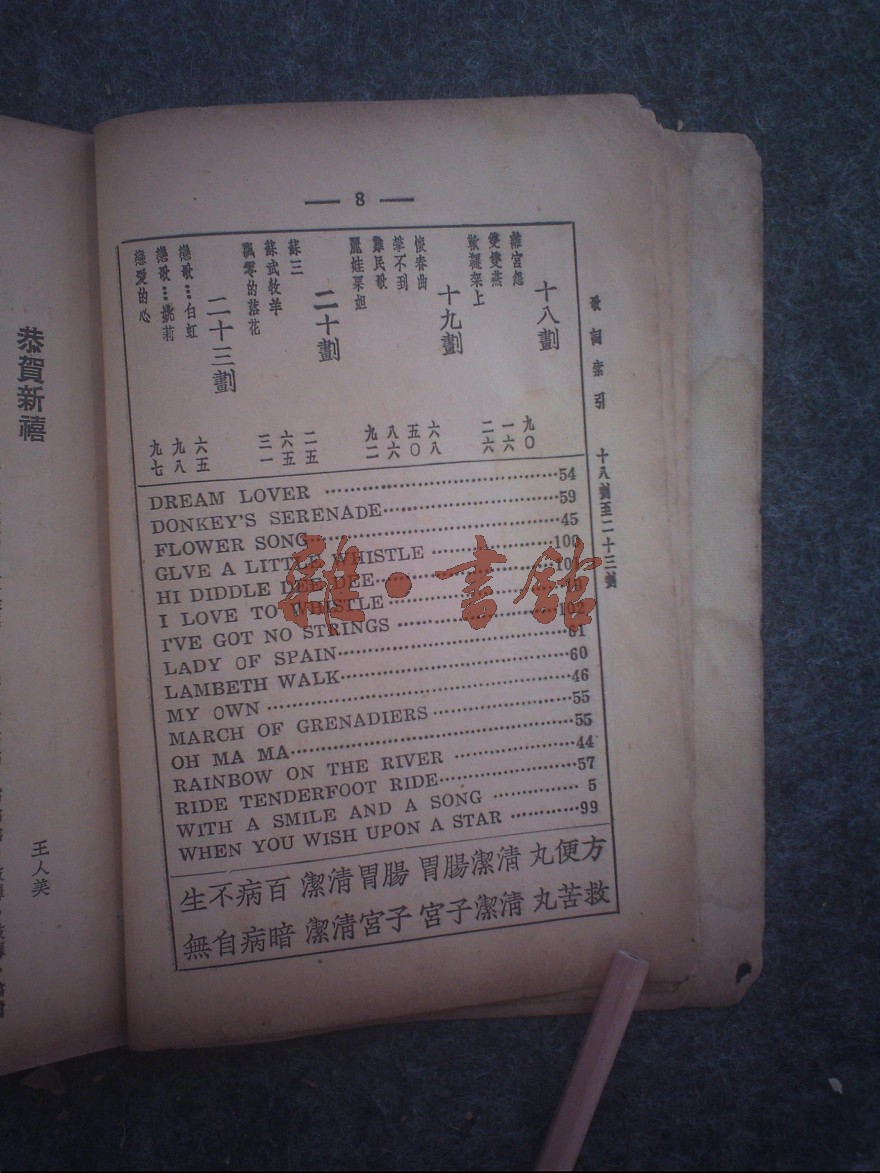 — 8 —
歌詞索引 十八劃至二十三劃
十八劃
離宮怨 九〇
雙雙燕 一六
鞦韆架上 二六
十九劃
懷春曲 六八
不到 五〇
難民歌 八六
麗娃栗妲 九二
二十劃
蘇三 二五
蘇武牧羊 六五
飄零的落花 三一
二十三劃
戀歌…白虹 六五
戀歌…莉 九八
戀愛的心 九七
DREAM LOVER ……54
DONKEY'S SERENADE……59
FLOWER SONG……45
GLVE A LITTLE WHISTLE ……100
HI DIDDLE DEE DEE……
I LOVE TO WHISTLE……
I'VE GOT NO STRINGS ……102
LADY OF SPAIN……61
LAMBETH WALK……60
MY OWN ……46
MARCH OF GRENADIERS ……55
OH MA MA……55
RAINBOW ON THE RIVER ……44
RIDE TENDERFOOT RIDE……57
WITH A SMILE AND A SONG …… 5
WHEN YOU WISH UPON A STAR ……99
方便丸 清潔腸胃 腸胃清潔 百病不生
救苦丸 清潔子宮 子宮清潔 暗病自無
恭賀新禧
王人美
雜·書館